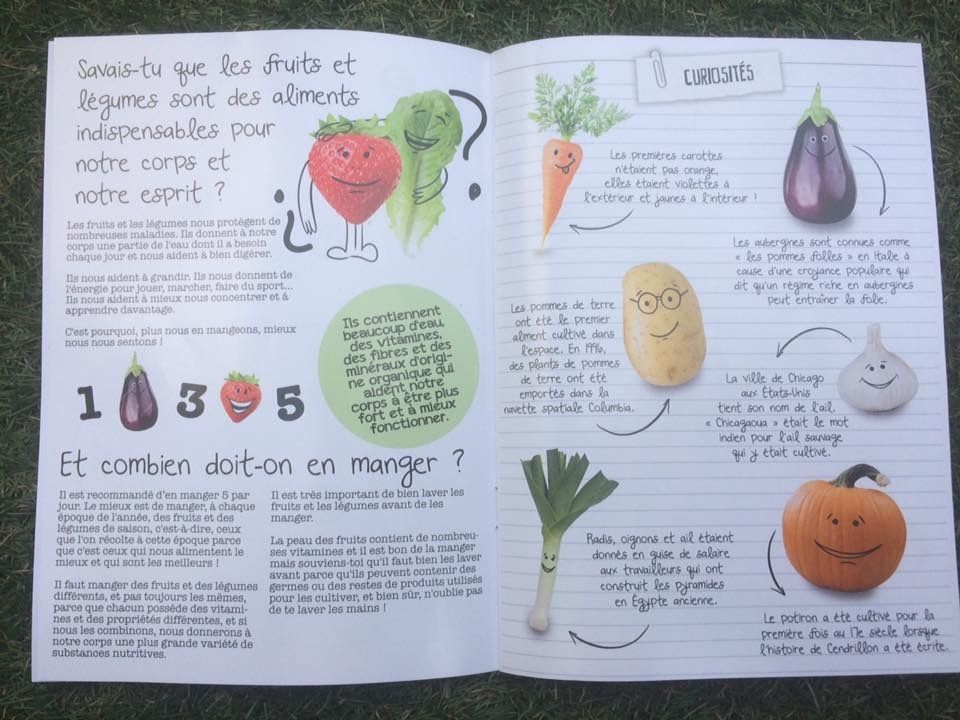 Savais-tu que les fruits et
légumes sont des aliments
indispensables pour
notre corps et
notre esprit ?
Les fruits et les légumes nous protègent de
nombreuses maladies. Ils donnent à notre
corps une partie de l'eau dont il a besoin
chaque jour et nous aident à bien digérer.
Ils nous aident à grandir. Ils nous donnent de
l'énergie pour jouer, marcher, faire du sport...
Ils nous aident à mieux nous concentrer et à
apprendre davantage.
C'est pourquoi, plus nous en mangeons, mieux
nous nous sentons !
¿ ?
Ils contiennent
beaucoup d'eau,
des vitamines,
des fibres et des
minéraux d'origi-
ne organique qui
aident notre
corps à être plus
fort et à mieux
fonctionner.
1 3 5
Et combien doit-on en manger ?
Il est recommandé d'en manger 5 par
jour. Le mieux est de manger, à chaque
époque de l'année, des fruits et des
légumes de saison, c'est-à-dire, ceux
que l'on récolte à cette époque parce
que c'est ceux qui nous alimentent le
mieux et qui sont les meilleurs !
Il faut manger des fruits et des légumes
différents, et pas toujours les mêmes,
parce que chacun possède des vitami-
nes et des propriétés différentes, et si
nous les combinons, nous donnerons à
notre corps une plus grande variété de
substances nutritives.
Il est très important de bien laver les
fruits et les légumes avant de les
manger.
La peau des fruits contient de nombreu-
ses vitamines et il est bon de la manger
mais souviens-toi qu'il faut bien les laver
avant parce qu'ils peuvent contenir des
germes ou des restes de produits utilisés
pour les cultiver, et bien sûr, n'oublie pas
de te laver les mains !
CURIOSITÉS
Les premières carottes
n'étaient pas orange,
elles étaient violettes à
l'extérieur et jaunes à l'intérieur !
Les aubergines sont connues comme
« les pommes folles » en Italie à
cause d'une croyance populaire qui
dit qu'un régime riche en aubergines
peut entraîner la folie.
Les pommes de terre
ont été le premier
aliment cultivé dans
l'espace. En 1996,
des plants de pommes
de terre ont été
emportés dans la
navette spatiale Columbia.
La ville de Chicago
aux États-Unis
tient son nom de l'ail.
« Chicagaoua » était le mot
indien pour l'ail sauvage
qui y était cultivé.
Radis, oignons et ail étaient
donnés en guise de salaire
aux travailleurs qui ont
construit les pyramides
en Égypte ancienne.
Le potiron a été cultivé pour la
première fois au 17e siècle lorsque
l'histoire de Cendrillon a été écrite.